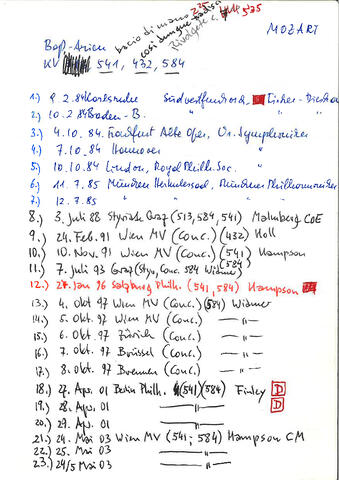 MOZART
Baß-Arien un bacio di mano 575
KV 541, 432, 584 così dunque tradisci Rivolgete
1.) 9.2.84 Karlsruhe Südwestfunkorch.
2.) 10.2.84 Baden-B. "
3.) 4.10.84 Frankfurt Alte Oper, Symphoniker
4.) 7.10.84 Hannover "
5.) 10.10.84 London, Royal Philh. Soc. "
6.) 11.7.85 München Herkulessaal, Münchner Philharmoniker
7.) 12.7.85 " " "
8.) 3. Juli 88 Styriarte Graz (513, 584, 541) Malmberg CoE
9.) 24. Feb. 91 Wien MV (Conc.) (432) Holl
10.) 10. Nov. 91 Wien MV (Conc.) (541) (584) Hampson
11.) 7. Juli 93 Graz (Sty, Conc. 584 Widmer)
12.) 27. Jan 96 Salzburg Philh. (541, 584) Hampson
13.) 4. Okt 97 Wien MV (Conc.) (584) Widmer
14.) 5. Okt. 97 Wien MV (Conc.) —"—
15.) 6. Okt. 97 Zürich (Conc.) —"—
16.) 7. Okt. 97 Brüssel (Conc.) —"—
17.) 8. Okt. 97 Bremen (Conc.) —"—
18.) 27. Apr. 01 Berlin Philh. (541) (584) Finley D
19.) 28. Apr. 01 —"— D
20.) 29. Apr. 01 —"—
21.) 24. Mai 03 Wien MV (541; 584) Hampson CM
22.) 25. Mai 03 —"—
23.) 24/5 Mai 03 —"—